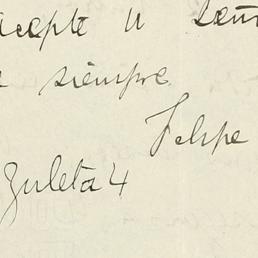 acepte u
siempre
Felipe
Zuleta 4